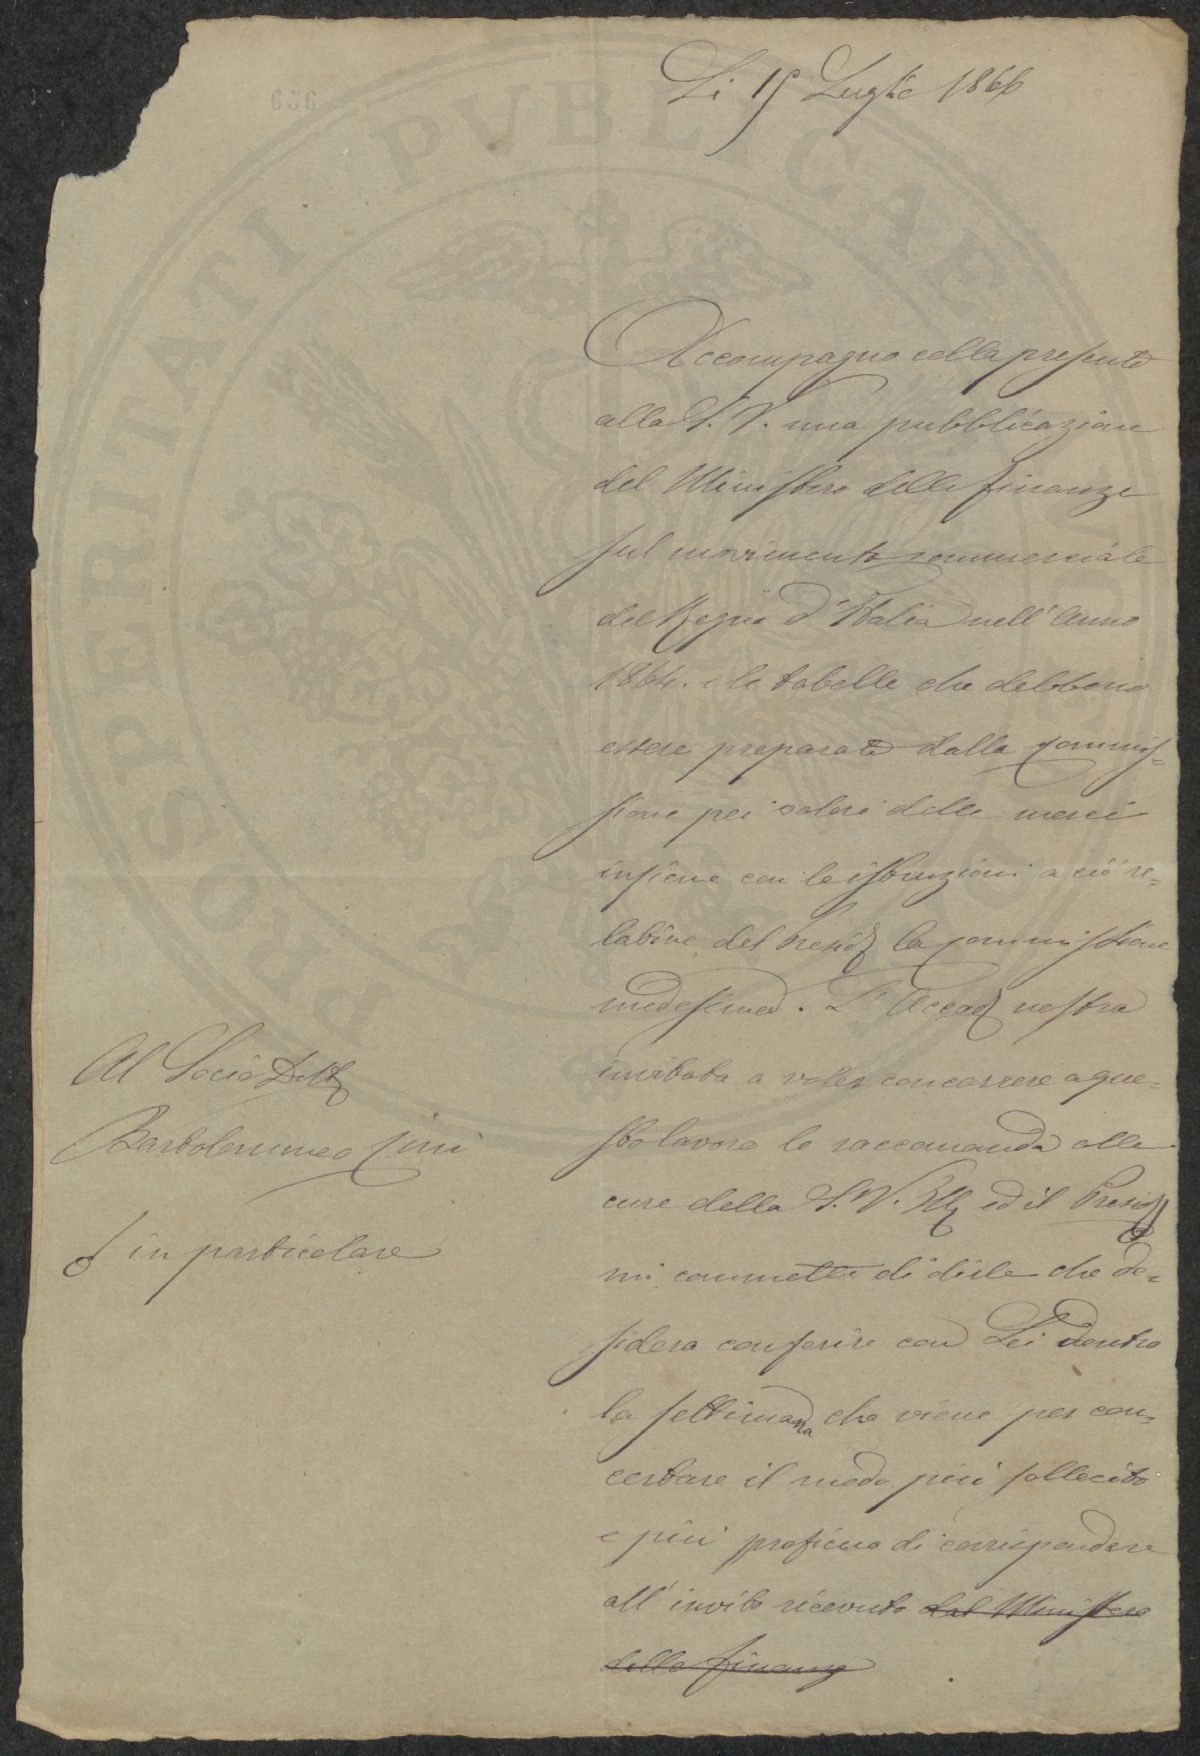 656
Li 15 Luglio 1866
Accompagno colla presente
alla S. V. una pubblicazione
del Ministero delle finanze
sul movimento commerciale
del Regno d'Italia nell'Anno
1864. e le tabelle che debbono
essere preparate dalla Commis=
sione pei valori delle merci
insieme con le istruzioni a ciò re=
lative del Presid la Commissione
medesima. L'Accad nostra
invitata a voler concorrere a que=
sto lavoro lo raccomanda alle
cure della S. V. Ill ed il Presid
mi commette di dirle che de=
sidera conferire con Lei dentro
la settimana che viene per con=
certare il modo più sollecito
e più proficuo di corrispondere
all'invito ricevuto dal Ministero
delle finanze
Al Socio Dott
Bartolommeo Cini
in particolare
PROSPERITATI PVBLICAE